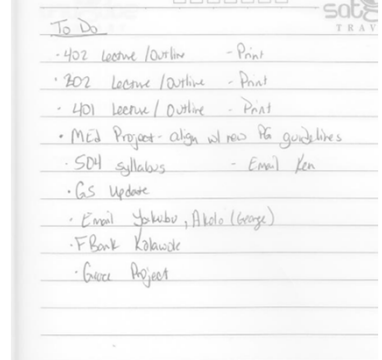 sat
TRAV
To Do
· 402 Lecture / Outline - Print
· 202 Lecture / Outline - Print
· 401 Lecture / Outline - Print
· MEd Project - align w/ new PG guidelines
· 504 syllabus - Email Ken
· GS Update
· Email Yakubu, Akolo (George)
· FBank Kolawole
· Grace Project